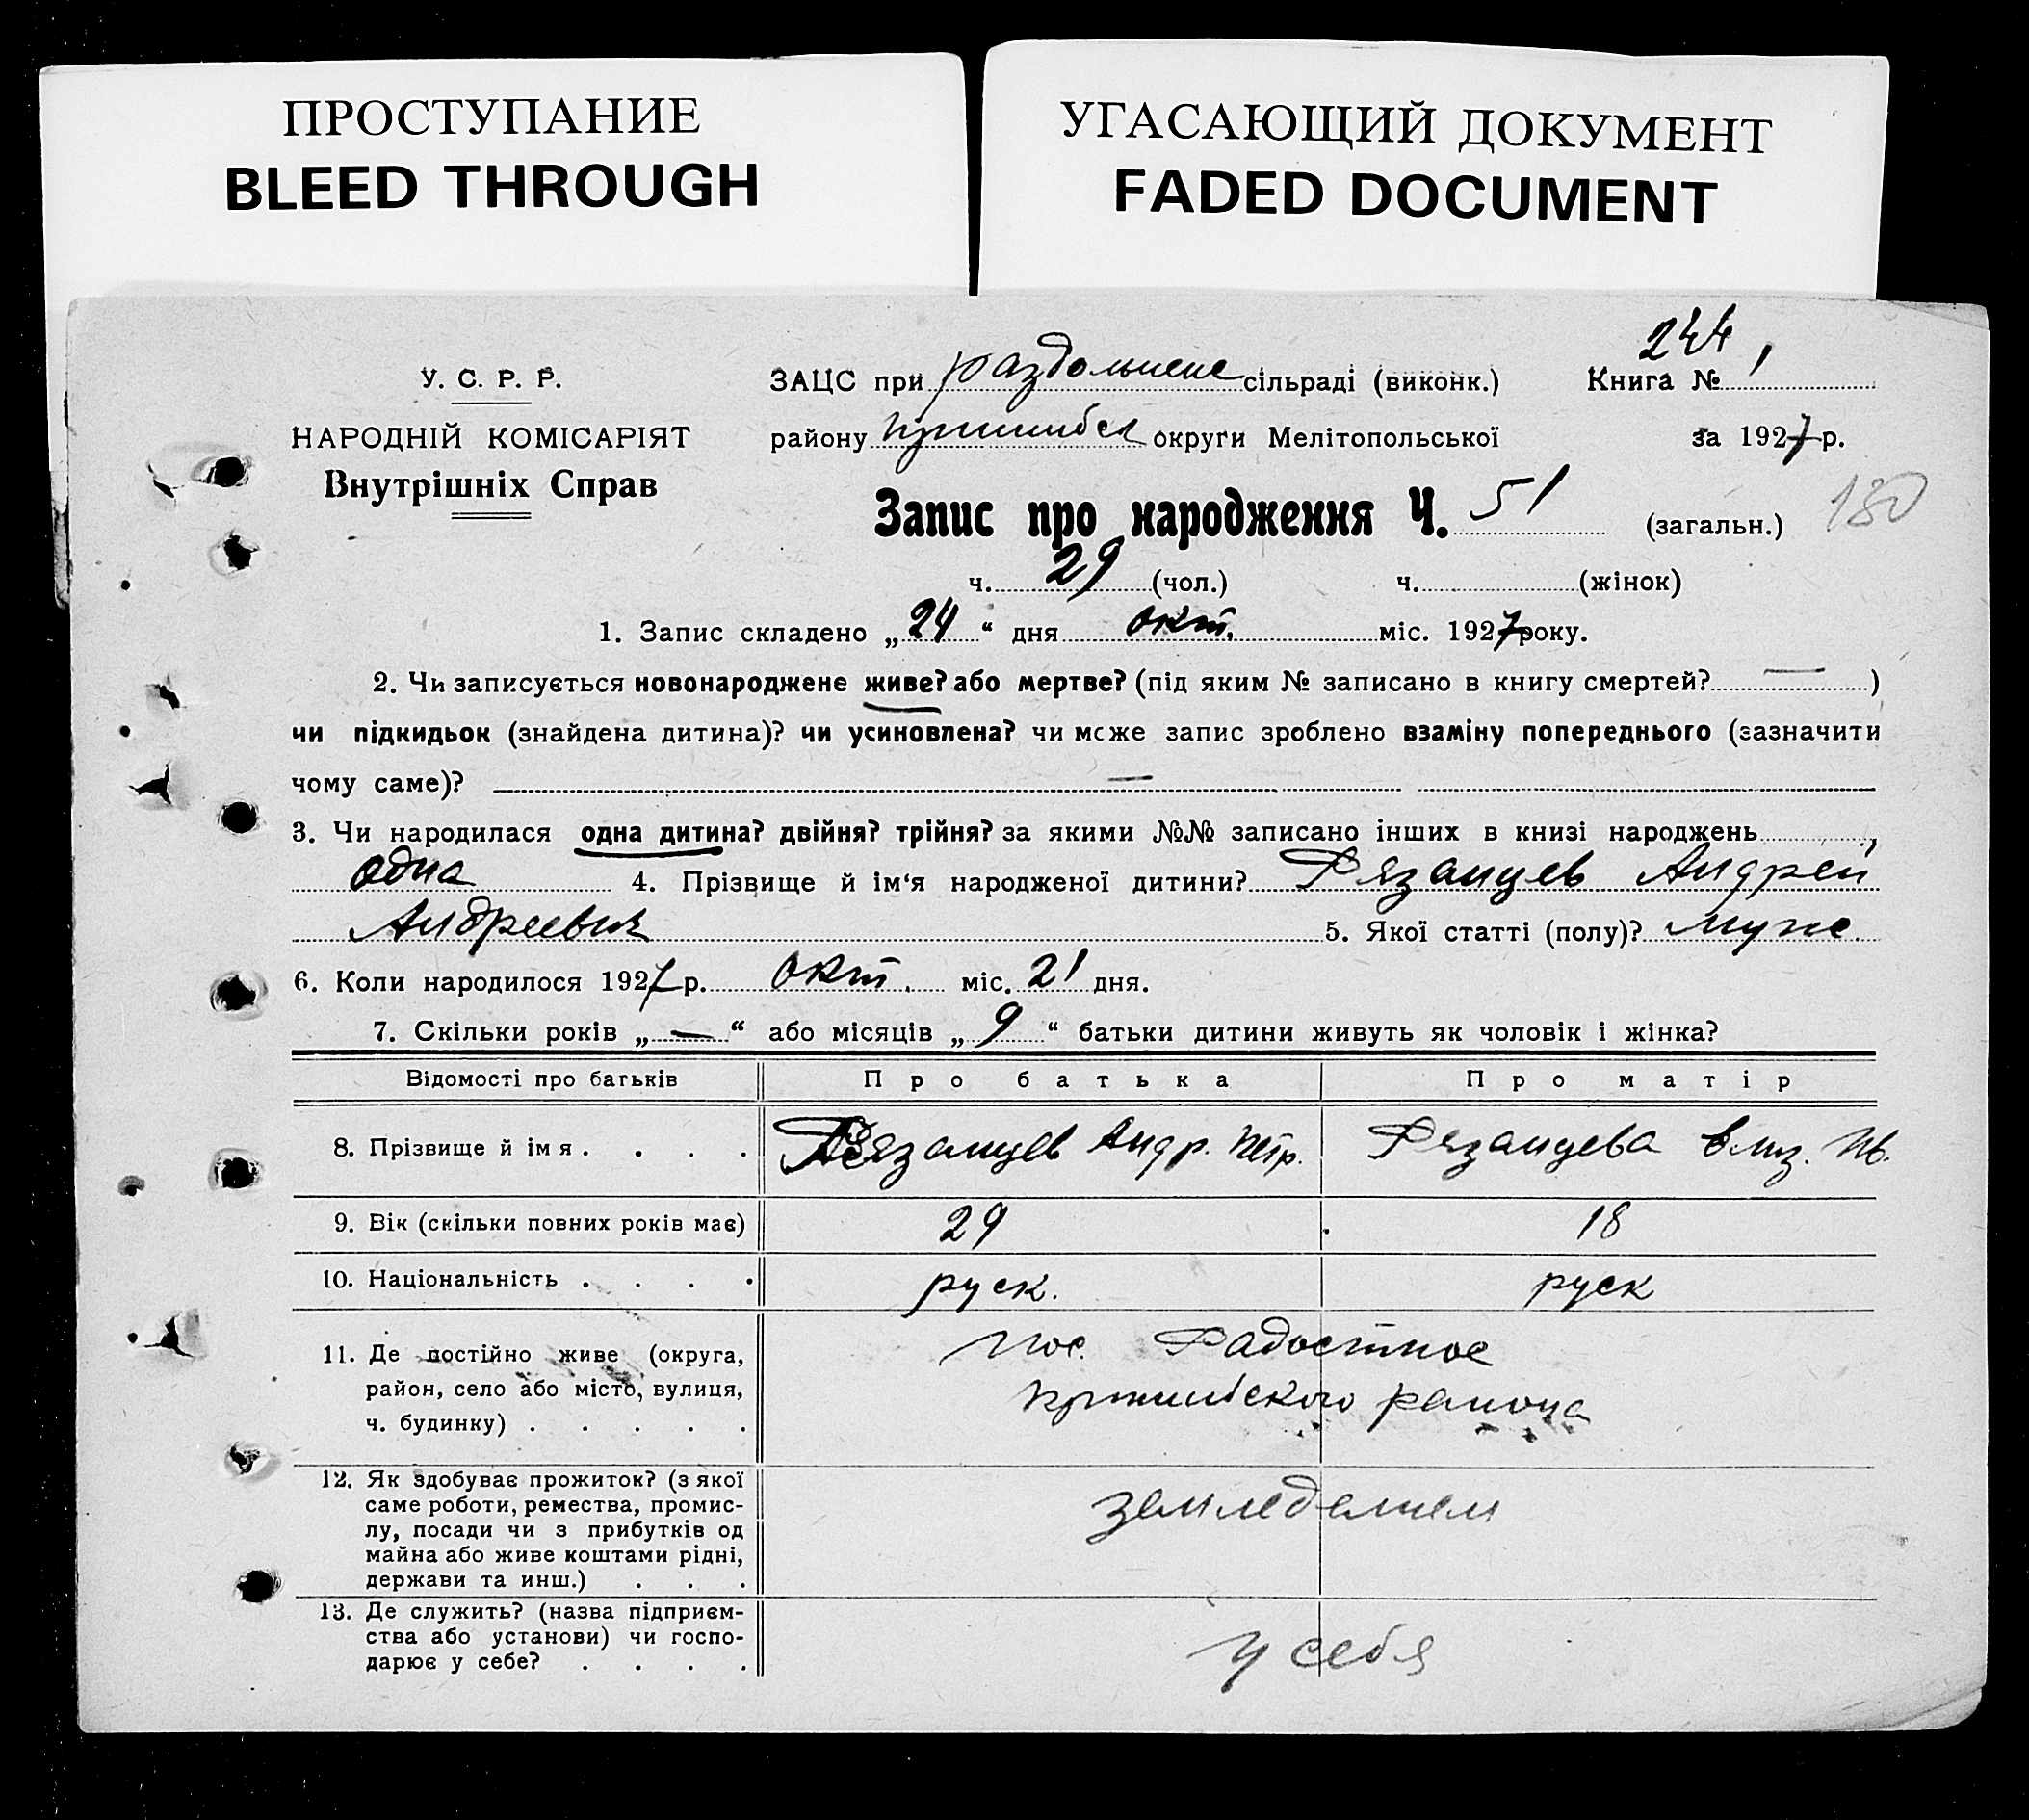 ПРОСТУПАНИЕ
BLEED THROUGH
УГАСАЮЩИЙ ДОКУМЕНТ
FADED DOCUMENT
244
У. С. Р. Р.
НАРОДНІЙ КОМІСАРІЯТ
Внутрішніх Справ
ЗАЦС при сільраді (виконк.) Книга № 1
району округи Мелітопольської за 1927 р.
Запис про народження Ч. 51 (загальн.) 180
ч. 29 (чол.) ч. (жінок)
1. Запис складено „24“ дня окт. міс. 1927 року.
2. Чи записується новонароджене живе? або мертве? (під яким № записано в книгу смертей? — )
чи підкидьок (знайдена дитина)? чи усиновлена? чи може запис зроблено взаміну попереднього (зазначити
чому саме)? —
3. Чи народилася одна дитина? двійня? трійня? за якими №№ записано інших в книзі народжень ,
одна 4. Прізвище й ім‘я народженої дитини? Рязанцев Андрей
Андреевич 5. Якої статті (полу)? муж
6. Коли народилося 1927 р. окт. міс. 21 дня.
7. Скільки років „—“ або місяців „9“ батьки дитини живуть як чоловік і жінка?
Відомості про батьків Про батька Про матір
8. Прізвище й ім я . . . . Рязанцев Андр. Петр. Рязанцева Елиз. Ив.
9. Вік (скільки повних років має) 29 18
10. Національність . . . . руск. руск
11. Де постійно живе (округа,
район, село або місто, вулиця,
ч. будинку) . . . . .
пос. Радостное
района
12. Як здобуває прожиток? (з якої
саме роботи, ремества, промис-
лу, посади чи з прибутків од
майна або живе коштами рідні,
держави та инш.) . . .
земледелием
13. Де служить? (назва підприєм-
ства або установи) чи госпо-
дарює у себе? . . . .
у себя